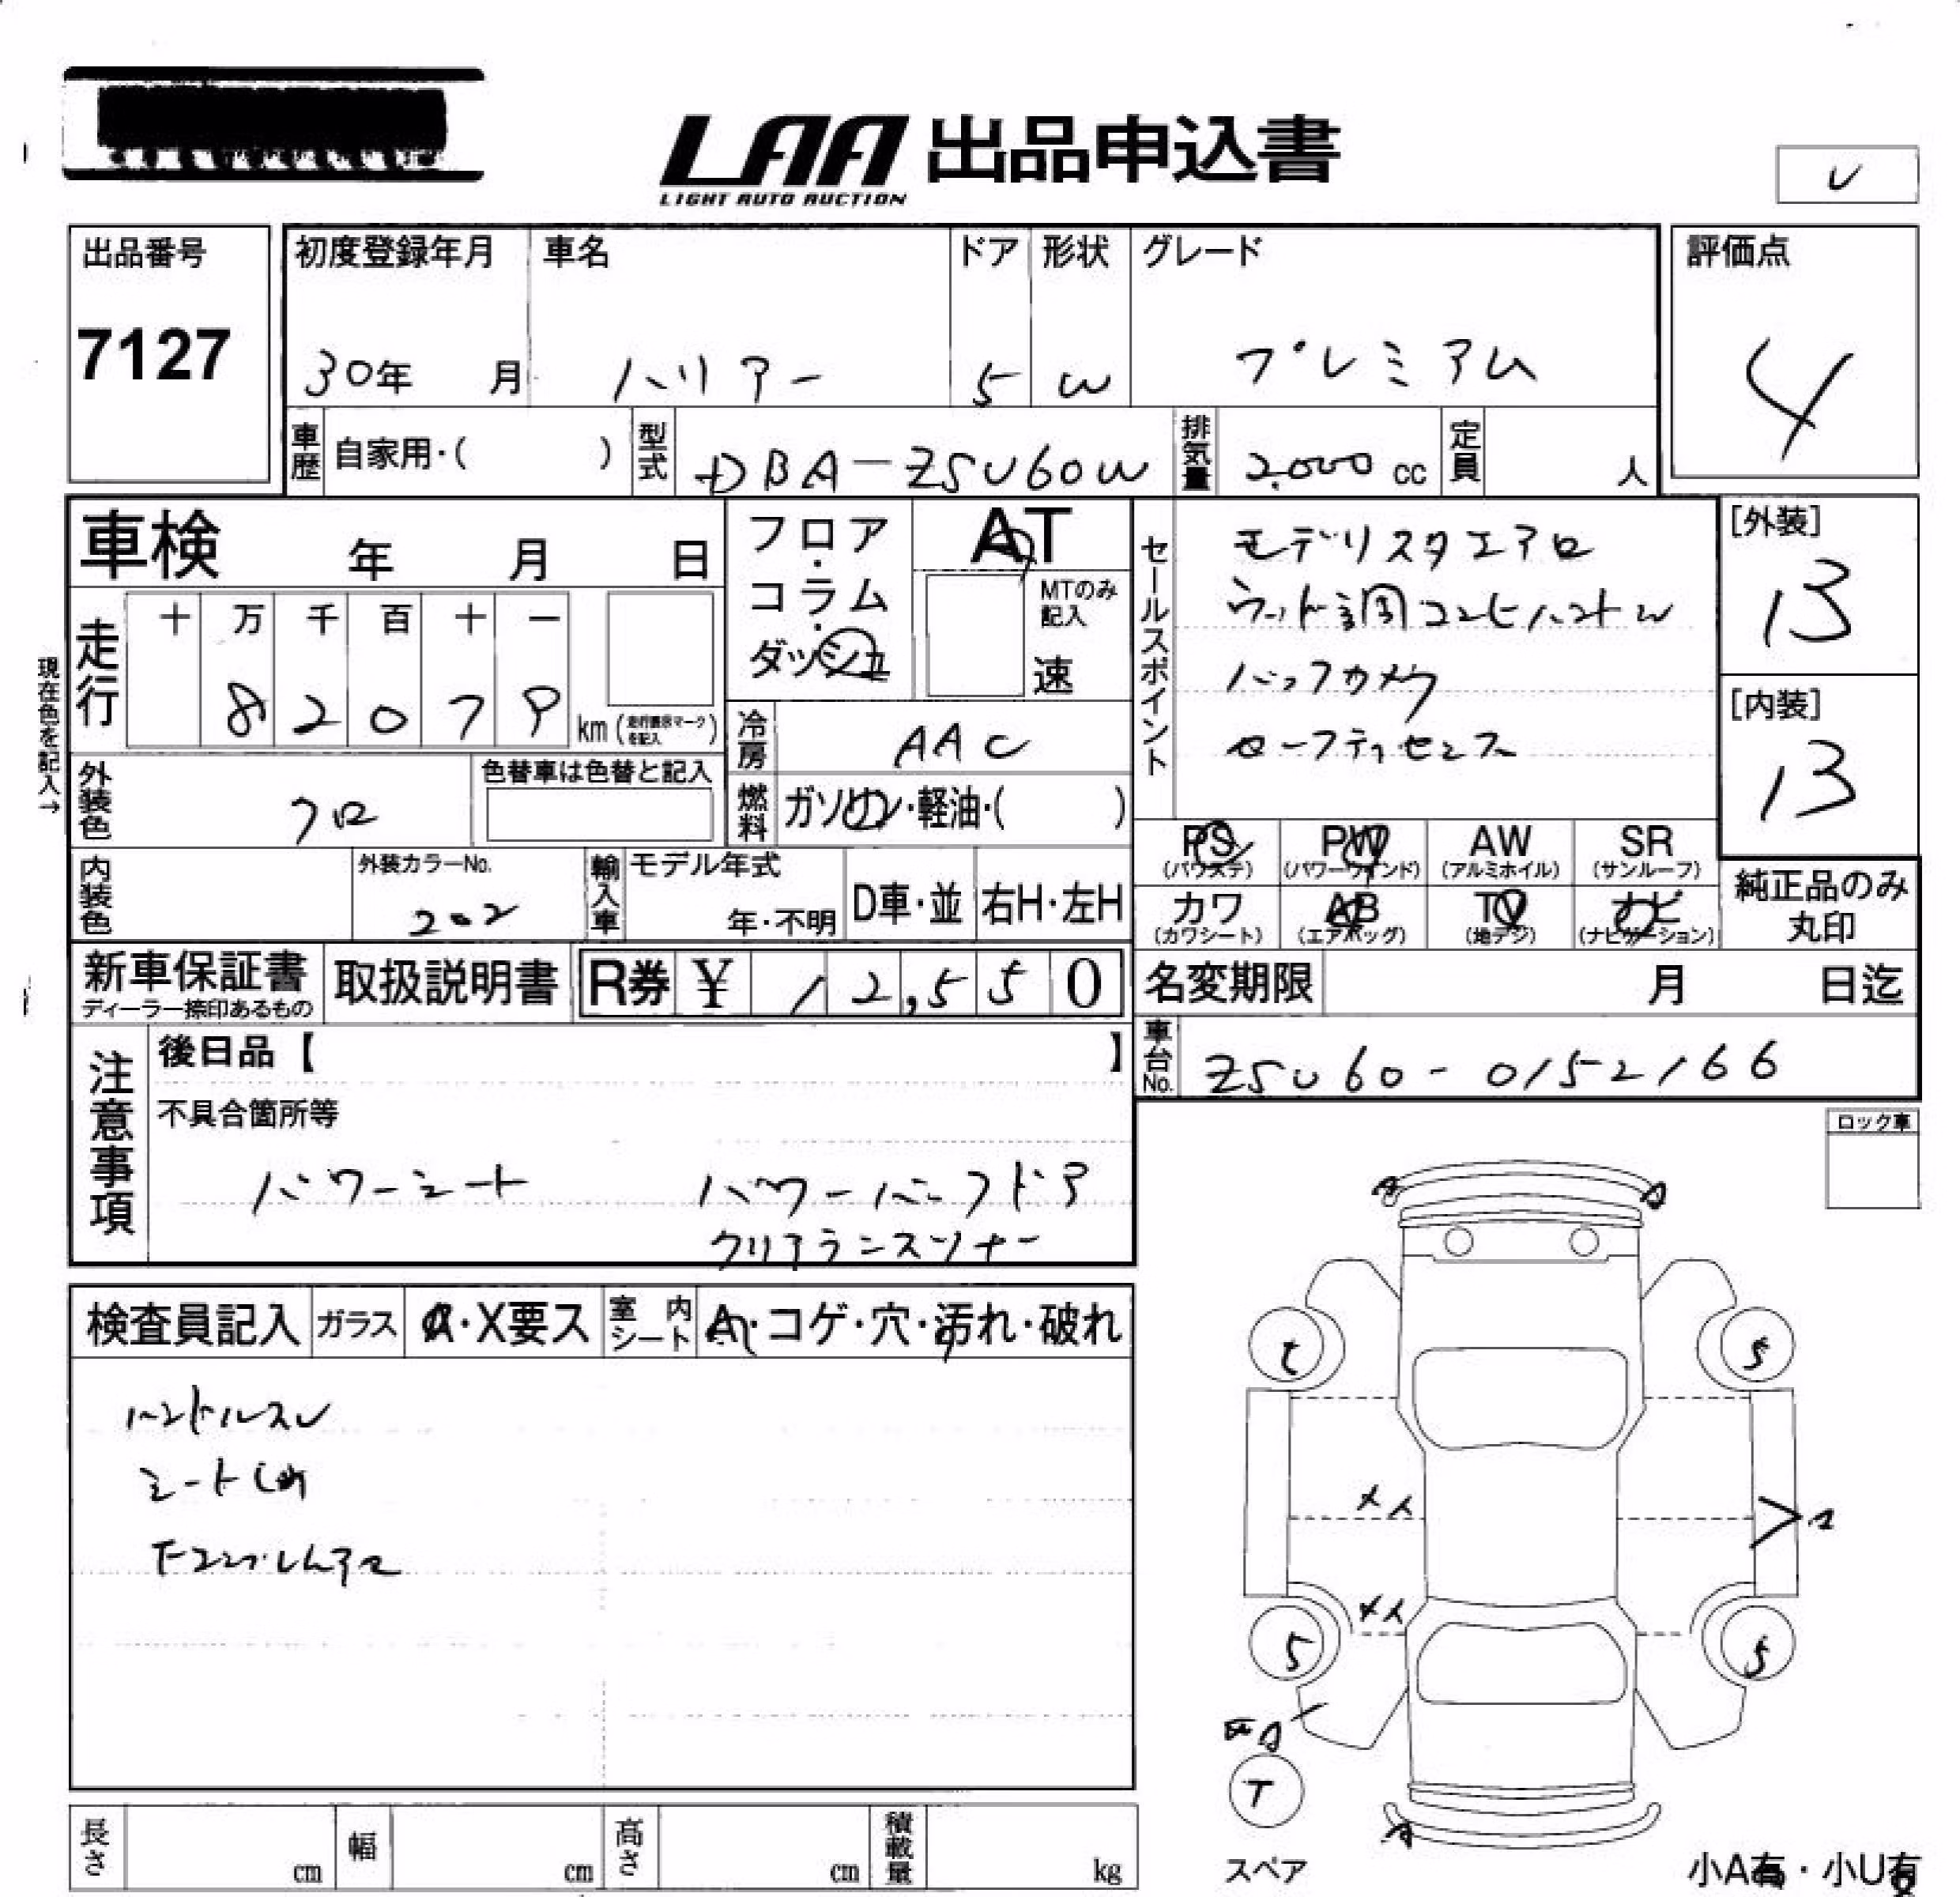 LAA 出品申込書
LIGHT AUTO AUCTION
U
出品番号
7127
初度登録年月 車名 ドア 形状 グレード
30年 月 ハリアー 5 W プレミアム
評価点
4
車歴 自家用・( ) 型式 DBA-ZSU60W 排気量 2,000 cc 定員 人
車検 年 月 日
フロア・コラム・ダッシュ
AT
MTのみ記入
速
走行 十 万 千 百 十 一
8 2 0 7 9 km (走行表示マークを記入)
現在色を記入→
冷房 AAC
外装色 クロ
色替車は色替と記入
燃料 ガソリン・軽油・( )
内装色
外装カラーNo.
202
輸入車 モデル年式
年・不明 D車・並 右H・左H
セールスポイント
モデリスタエアロ
ウッド調コンビハンドル
バックカメラ
セーフティセンス
[外装]
13
[内装]
13
PS (パワステ) PW (パワーウインド) AW (アルミホイル) SR (サンルーフ)
カワ (カワシート) AB (エアバッグ) TV (地デジ) ナビ (ナビゲーション)
純正品のみ丸印
新車保証書
ディーラー捺印あるもの
取扱説明書
R券 ¥ 12,550
名変期限 月 日迄
車台No. ZSU60-0152166
注意事項
後日品【 】
不具合箇所等
パワーシート パワーバックドア
クリアランスソナー
ロック車
検査員記入 ガラス A・X要ス 室内シート A・コゲ・穴・汚れ・破れ
ハンドルスレ
シート
t 5
5 5
T
スペア
小A有・小U有
長さ cm 幅 cm 高さ cm 積載量 kg